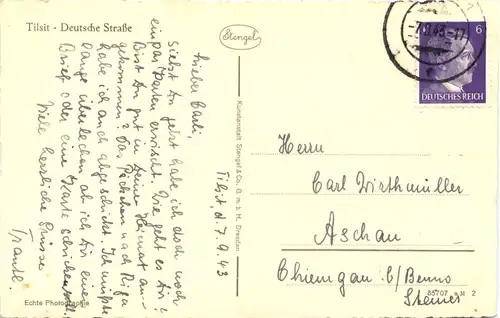 Tilsit - Deutsche Straße
Stengel
-7.9.43-17
6
DEUTSCHES REICH
Tilsit, d. 7.9.43
Lieber Carli,
siehst Du jetzt habe ich doch noch
ein paar Karten erwischt. Wie geht es Dir?
Bist Du gut in Deiner Heimat an-
gekommen? Das Päckchen nach Riga
habe ich auch abgeschickt. Ich mußte
lange überlegen ob ich Dir einen
Brief oder eine Karte schicken soll.
Viele herzliche Grüsse
Traudl.
Echte Photographie
Kunstanstalt Stengel & Co. G. m. b. H., Dresden
Herrn
Carl Wirthmüller
Aschau
Chiemgau b/Benno
Steiner
85707 2